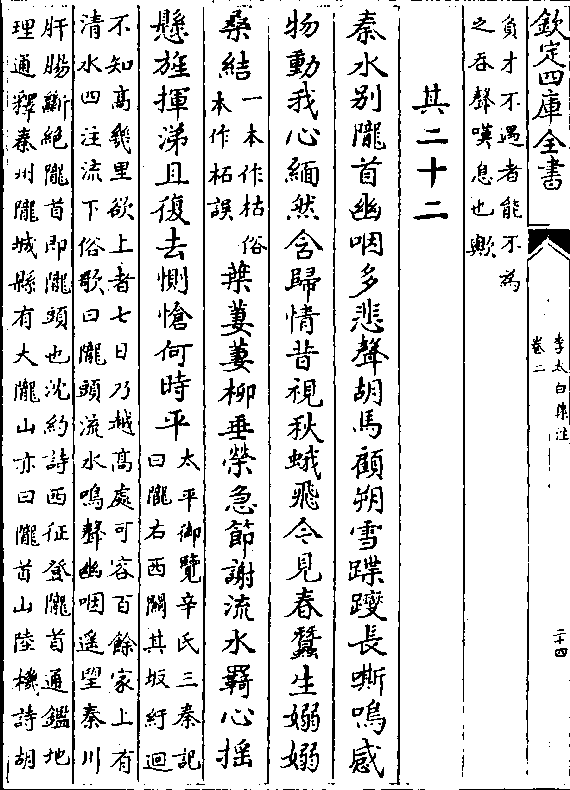 欽定四庫全書
李太白集注
卷二
二十四
負才不遇者能不為
之吞聲嘆息也歟
其二十二
秦水别隴首幽咽多悲聲胡馬顧朔雪蹀躞長嘶鳴感
物動我心緬然含歸情昔視秋蛾飛今見春蠶生嫋嫋
桑結一本作枯俗
本作柘誤葉萋萋柳垂榮急節謝流水羇心揺
懸旌揮涕且復去惻愴何時平太平御覽辛氏三秦記
曰隴右西關其坂紆迴
不知髙幾里欲上者七日乃越髙處可容百餘家上有
清水四注流下俗歌曰隴頭流水鳴聲幽咽遥望秦川
肝腸斷絶隴首即隴頭也沈約詩西征登隴首通鑑地
理通釋秦州隴城縣有大隴山亦曰隴首山陸機詩胡